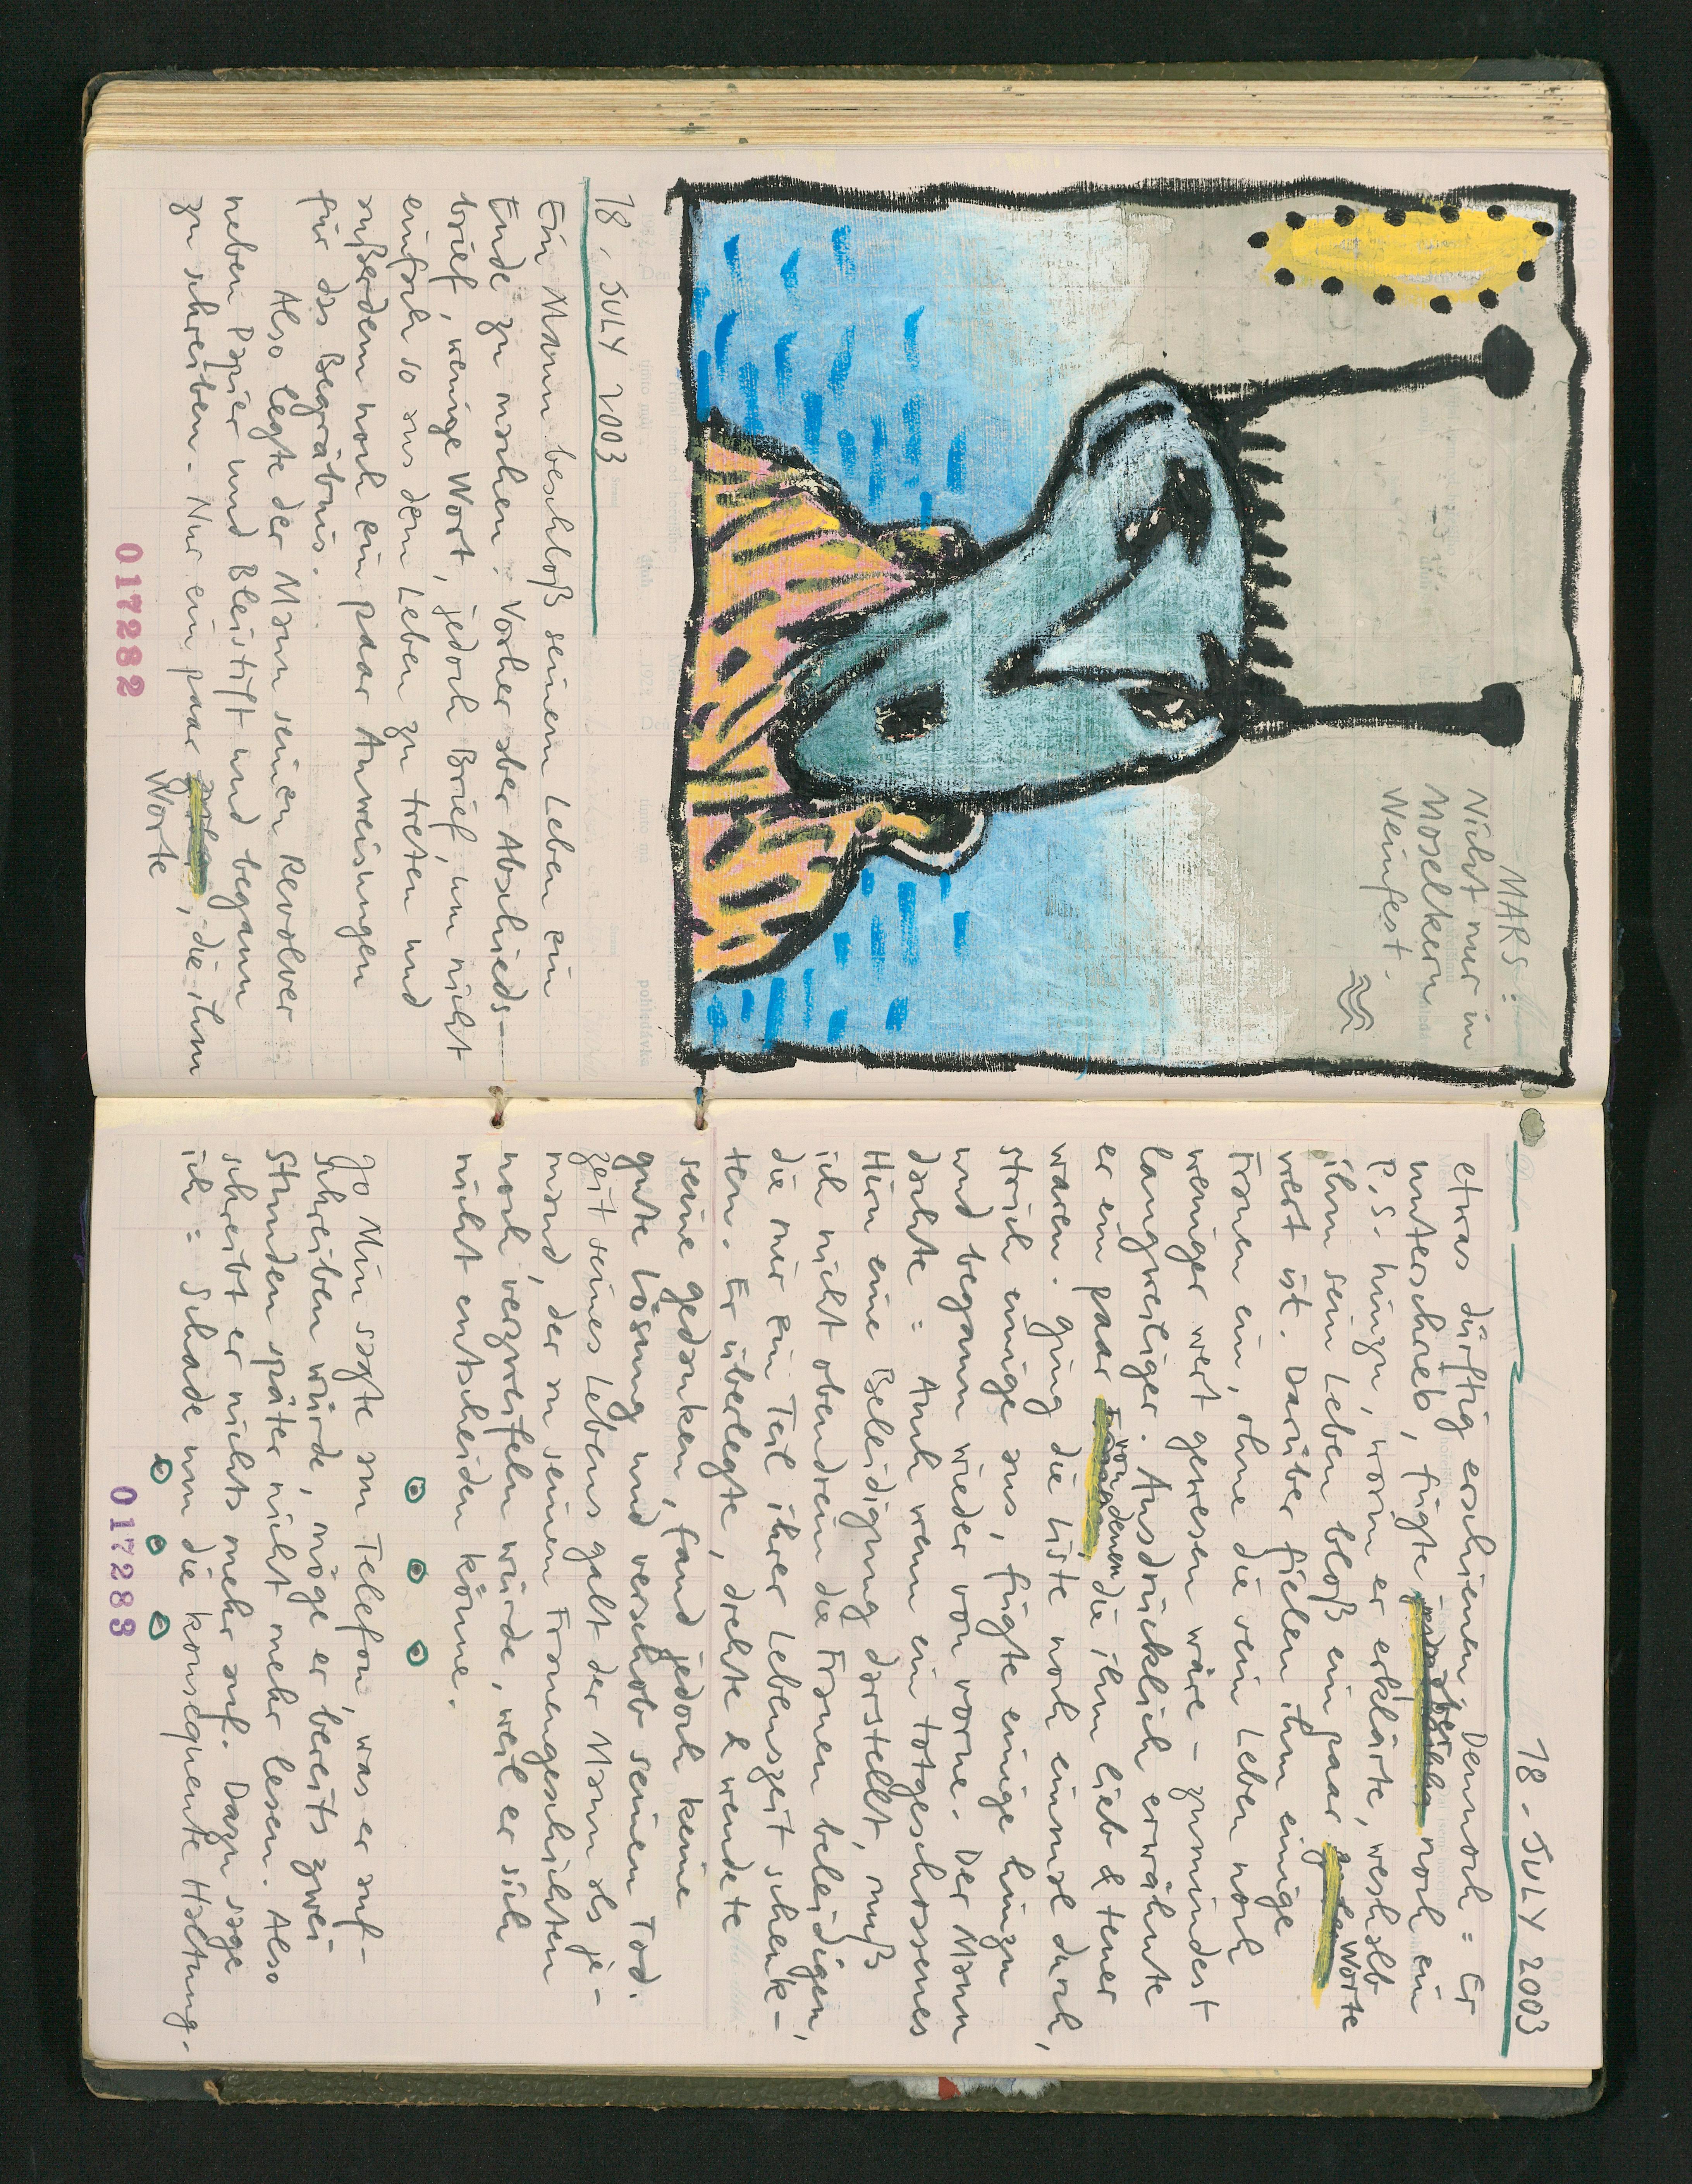 MARS:
Nicht nur in
Moselkern
Weinfest.
18. JULY 2003
Ein Mann beschloß seinem Leben ein
Ende zu machen. Vorher aber Abschieds-
brief, wenige Wort, jedoch Brief, um nicht
einfach so aus dem Leben zu treten und
außerdem noch ein paar Anweisungen
für das Begräbnis.
Also legte der Mann seinen Revolver
neben Papier und Bleistift und begann
zu schreiben. Nur ein paar , die ihm
Worte
017282
18. JULY 2003
etwas dürftig erschienen. Dennoch: Er
unterschrieb, fügte aber noch ein
P.S. hinzu, worin er erklärte, weshalb
ihm sein Leben bloß ein paar Worte
wert ist. Darüber fielen ihm einige
Frauen ein, ohne die sein Leben noch
weniger wert gewesen wäre - zumindest
langweiliger. Ausdrücklich erwähnte
er ein paar von denen, die ihm lieb & teuer
waren. ging die Liste noch einmal durch,
strich einige aus, fügte einige hinzu
und begann wieder von vorne. Der Mann
dachte: Auch wenn ein totgeschossenes
Hirn eine Beleidigung darstellt, muß
ich nicht obendrein die Frauen beleidigen,
die mir ein Teil ihrer Lebenszeit schenk-
ten. Er überlegte, drehte & wendete
seine gedanken, fand jedoch keine
gute Lösung und verschob seinen Tod.
Zeit seines Lebens galt der Mann als je-
mand, der an seinen Frauengeschichten
noch verzweifeln würde, weil er sich
nicht entscheiden könne.
Jo Min sagte am Telefon, was er auf-
schreiben würde, möge er bereits zwei
Stunden später nicht mehr lesen. Also
schreibt er nichts mehr auf. Dazu sage
ich: Schade um die konsequente Haltung.
017283